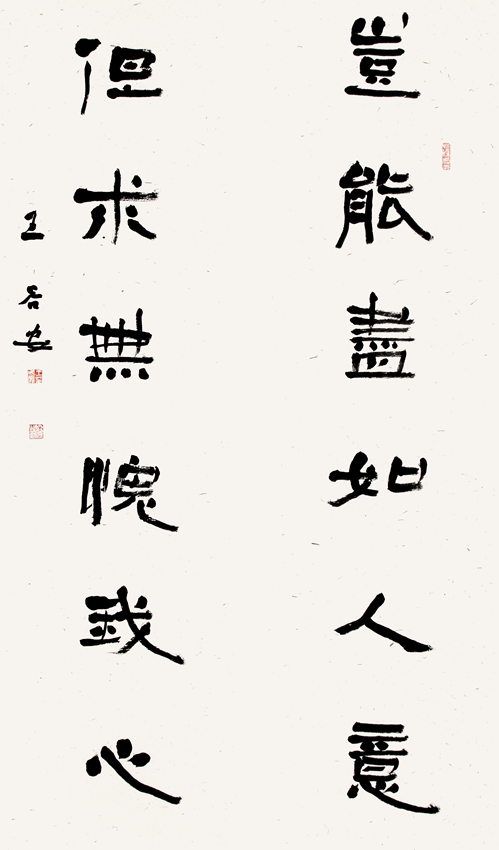 豈能盡如人意
但求無愧我心
王客安